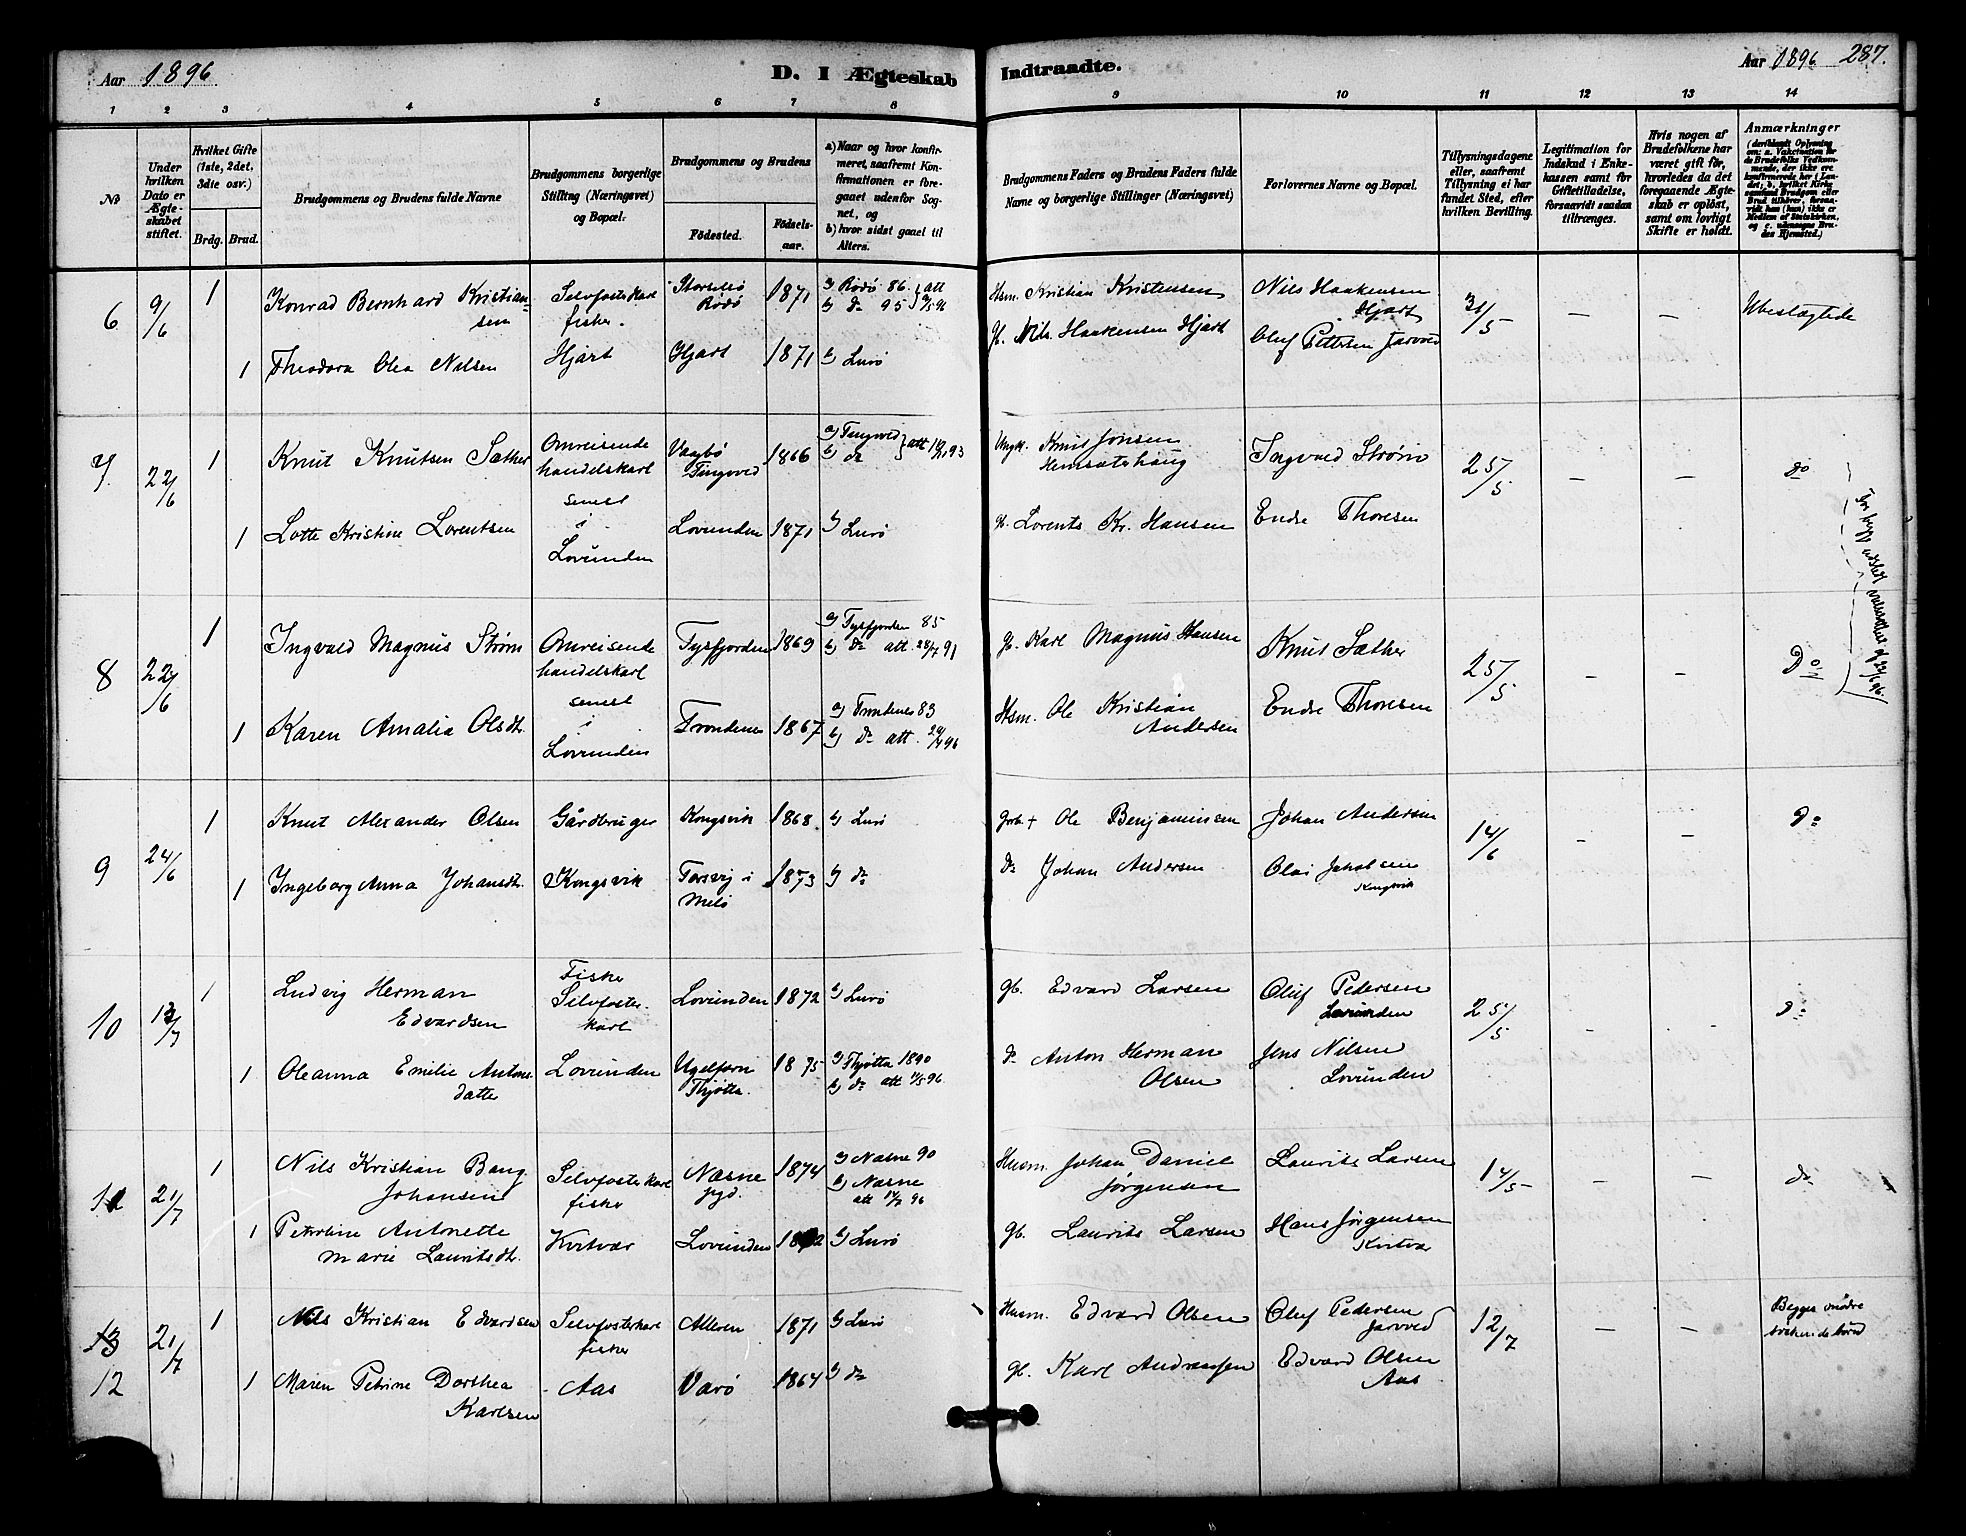 Aar 1896
D. I Ægteskab
Indtraadte.
Aar 1896 287.
1 2 3 4 5 6 7 8 9 10 11 12 13 14
No
Under hvilken Dato er Ægteskabet stiftet.
Hvilket Gifte (1ste, 2det, 3die osv.)
Brdg. Brud.
Brudgommens og Brudens fulde Navne
Brudgommens borgerlige Stilling (Næringsvei) og Bopæl.
Brudgommens og Brudens
Födested.
Födselsaar.
a) Naar og hvor konfirmeret, saafremt Konfirmationen er foregaaet udenfor Sognet, og
b) hvor sidst gaaet til Alters.
Brudgommens Faders og Brudens Faders fulde Navne og borgerlige Stillinger (Næringsvei)
Forlovernes Navne og Bopæl.
Tillysningsdagene eller, saafremt Tillysning ei har fundet Sted, efter hvilken Bevilling.
Legitimation for Indskud i Enkekassen samt for Giftetilladelse, forsaavidt saadan tiltrænges.
Hvis nogen af Brudefolkene har været gift för, hvorledes da det foregaaende Ægteskab er oplöst, samt om lovligt Skifte er holdt.
Anmærkninger
6 9/6 1 Konrad Bernhard Kristiansen
Selvfosterkarl fisker.
Storselsö Rödö 1871 a) Rödö 86. b) do 95 att
Hsm. Kristian Kristensen
Nils Haakensen Hjart
31/5 — — Ubeslægtede
1 Theodora Olea Nilsen
Hjart Hjart 1871 b) Lurö
gb. Nils Haakensen Hjart
Oluf Pettersen Jarvved
7 22/6 1 Knut Knutsen Sæther
Omreisende handelskarl senest i Lovunden
Vaagbö Tingvod 1866 a) Tingvod b) do
Ungk. Knut Jonsen
Ingvald Ström
25/5 — — do
1 Lotte Kristine Lorentsen
Lovunden 1871 b) Lurö
gb. Lorents Kr. Hansen
Endre Thoresen
8 22/6 1 Ingvald Magnus Ström
Omreisende handelskarl senest i Lovunden
Tysfjorden 1869 a) Tysfjorden 85 b) do att. 28/7 91
gb. Karl Magnus Hansen
Knut Sæther
25/5 — — Do
1 Karen Amalia Olsdt.
Trondenes 1867 a) Trondenes 83 b) do att.
Hsm. Ole Kristian Andersen
Endre Thoresen
9 24/6 1 Knut Alexander Olsen
Gårdbruger Kongsvik 1868 b) Lurö
grb. + Ole Benjaminsen
Johan Andersen
14/6 — — do
1 Ingeborg Anna Johansdt.
Kongsvik Torsvig i Melö 1873 b) do
do Johan Andersen
Olai Jakobsen Kongsvik
10 13/7 1 Ludvig Herman Edvardsen
Fisker Selvfosterkarl
Lovunden 1872 b) Lurö
gb. Edvard Larsen
Oluf Pedersen Lovunden
25/5 — — do
1 Oleanna Emilie Antonsdatter
Lovunden Thjötta. 1875 a) Thjötta 1890 b) do att
do Anton Herman Olsen
Jens Nilsen Lovunden
11 21/7 1 Nils Kristian Bang Johansen
Selvfosterkarl fisker
Næsne pgd. 1874 a) Næsne 90 b) Næsne att
Husm. Johan Daniel Jörgensen
Laurits Larsen
14/5 — — do
1 Petrline Antonette Marie Lauritsdt.
Kvitvær Lovunden b) Lurö
gb. Laurits Larsen
Hans Jörgensen Kvitvær
12 21/7 1 Nils Kristian Edvardsen
Selvfosterkarl fisker
Alleren 1871 b) Lurö
Husm. Edvard Olsen
Oluf Pedersen Jarvved
12/7 — — Begges mödre söskendebörn
1 Maren Petrine Dorthea Karlsen
Aas Varö 1864 b) do
gb. Karl Andreassen
Edvard Olsen Aas